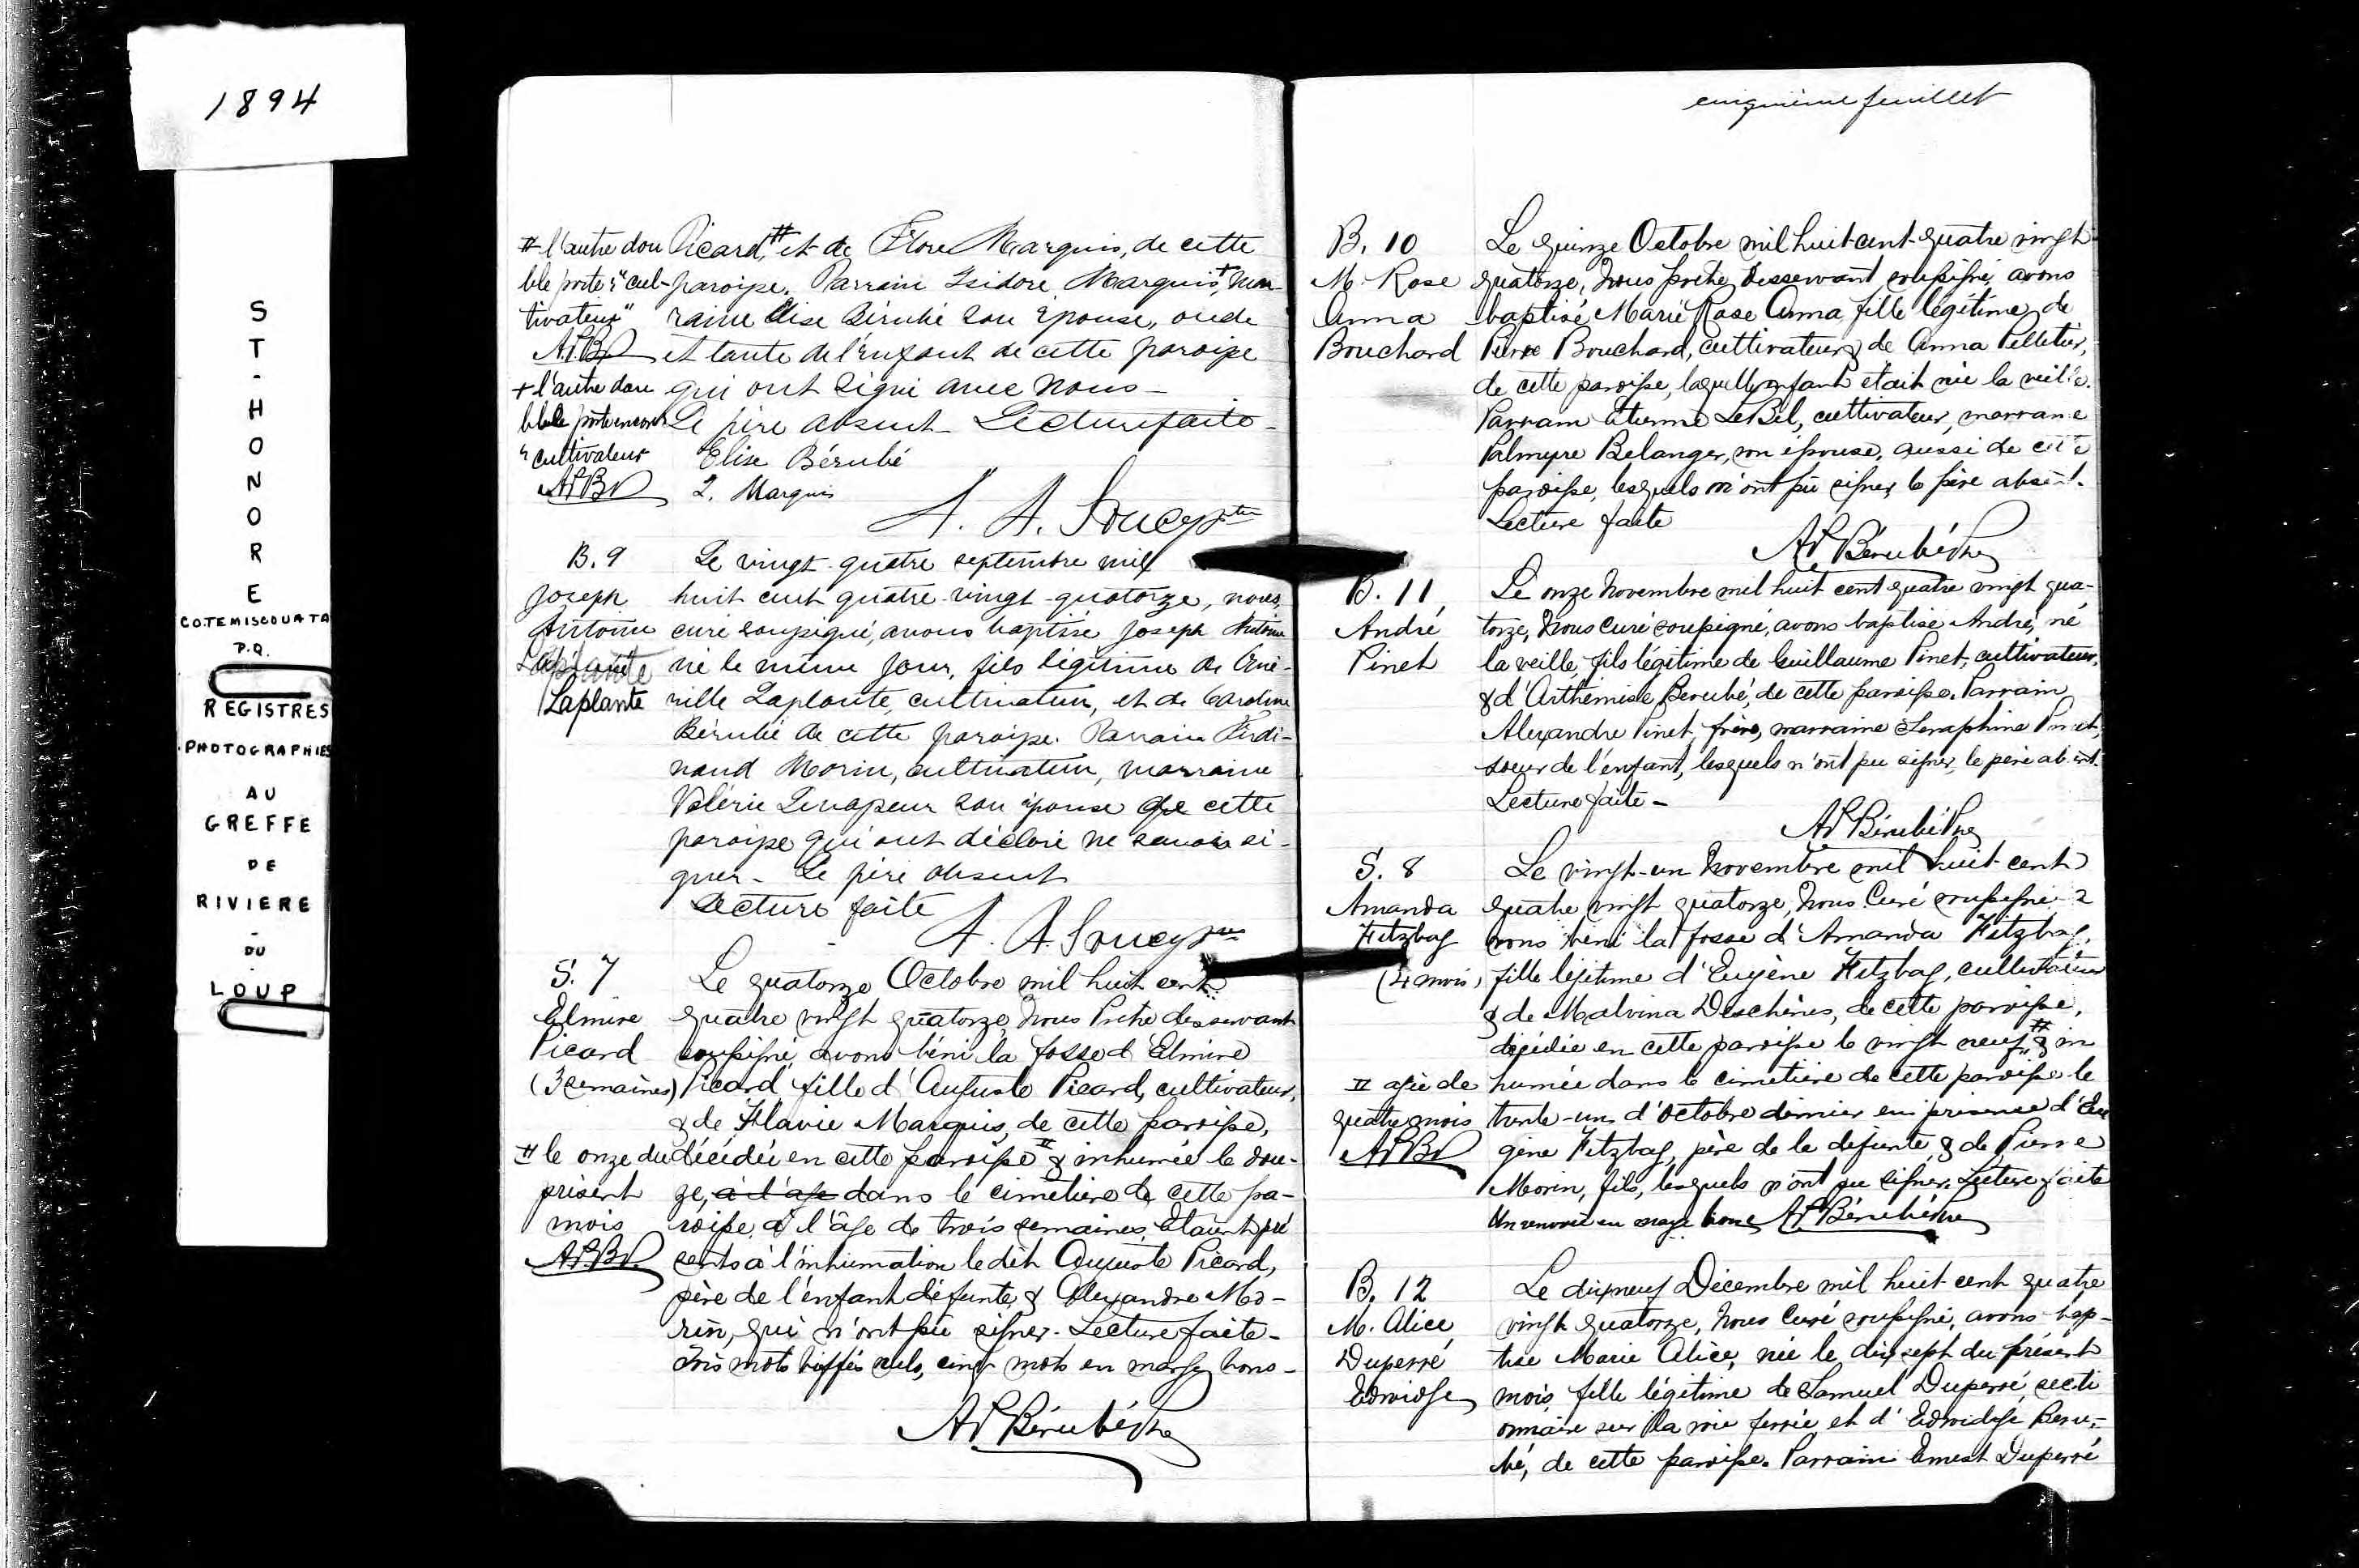 1894
ST-HONORE
CO.TEMISCOUATA
P.Q.
REGISTRES
PHOTOGRAPHIES
AU
GREFFE
DE
RIVIERE
-
DU
-
LOUP
# l'autre dou
ble porte: "cul-
tivateur"
+ l'autre dou
ble porte encore
"cultivateur
Picard,# et de Flore Marquis, de cette
paroisse. Parrain Isidore Marquis+, mar-
raine Elise Bérubé son épouse, oncle
et tante de l'enfant de cette paroisse
qui ont signé avec nous –
Le père absent – Lecture faite –
Elise Bérubé
I. Marquis
A. A. Soucy ptre
B. 9
Joseph
Antoine
Laplante
Laplante
Le vingt-quatre septembre mil
huit cent quatre-vingt-quatorze, nous,
curé soussigné, avons baptisé Joseph Antoine
né le même jour, fils légitime de
ville Laplante, cultivateur, et de Caroline
Bérubé de cette paroisse. Parrain Ferdi-
nand Morin, cultivateur, marraine
Valérie Levasseur son épouse de cette
paroisse qui ont déclaré ne savoir si-
gner – Le père absent
Lecture faite
A. A. Soucy ptre
S. 7
Elmire
Picard
(3 semaines)
# le onze du
présent
mois
Le quatorze Octobre mil huit cent
quatre vingt quatorze, Nous Prêtre desservant
soussigné, avons béni la fosse d'Elmire
Picard fille d'Auguste Picard, cultivateur,
& de Flavie Marquis, de cette paroisse,
décédée en cette paroisse # & inhumée le dou-
ze, à l'âge dans le cimetière de cette pa-
roisse, à l'âge de trois semaines. Étaient pré
sents à l'inhumation le dit Auguste Picard,
père de l'enfant défunte, & Alexandre Mo-
rin, qui n'ont pu signer. Lecture faite –
Trois mots biffés nuls, cinq mots en marge bons –
AP Bérubé Ptre
cinquième feuillet
B. 10
M. Rose
Anna
Bouchard
Le quinze Octobre mil huit-cent-quatre vingt-
quatorze, Nous prêtre desservant soussigné, avons
baptisé Marie Rose Anna fille légitime de
Pierre Bouchard, cultivateur & de Anna Pelletier,
de cette paroisse, laquelle enfant était née la veille.
Parrain Etienne LeBel, cultivateur, marraine
Palmyre Belanger, son épouse, aussi de cette
paroisse, lesquels n'ont pu signer, le père absent.
Lecture faite
AP Bérubé Ptre
B. 11
André
Pinet
Le onze Novembre mil huit cent quatre vingt qua-
torze, Nous Curé soussigné, avons baptisé André, né
la veille, fils légitime de Guillaume Pinet, cultivateur,
& d'Arthémise Berubé, de cette paroisse. Parrain
Alexandre Pinet, frère, marraine Seraphine Pinet,
soeur de l'enfant, lesquels n'ont pu signer, le père absent.
Lecture faite –
AP Bérubé Ptre
S. 8
Amanda
Fitzbag
(4 mois)
# agée de
quatre mois
Le vingt-un Novembre mil huit-cent
quatre vingt quatorze, Nous Curé soussigné a
vons béni la fosse d'Amanda Fitzbag,
fille légitime d'Eugène Fitzbag, cultivateur
& de Malvina Deschènes, de cette paroisse,
décédée en cette paroisse le vingt neuf # & in
humée dans le cimetière de cette paroisse le
trente-un d'octobre dernier en présence d'Eu
gène Fitzbag, père de la défunte, & de Pierre
Morin, fils, lesquels n'ont pu signer. Lecture faite
Un renvoi en marge bon AP Bérubé Ptre
B. 12
M. Alice
Duperré
Edwidge
Le dixneuf Décembre mil huit-cent quatre
vingt quatorze, Nous Curé soussigné, avons bap-
tisé Marie Alice, née le dix sept du présent
mois, fille légitime de Samuel Duperré, secti
onnaire sur la voie ferrée et d'Edwidge Beru-
bé, de cette paroisse. Parrain Ernest Duperré